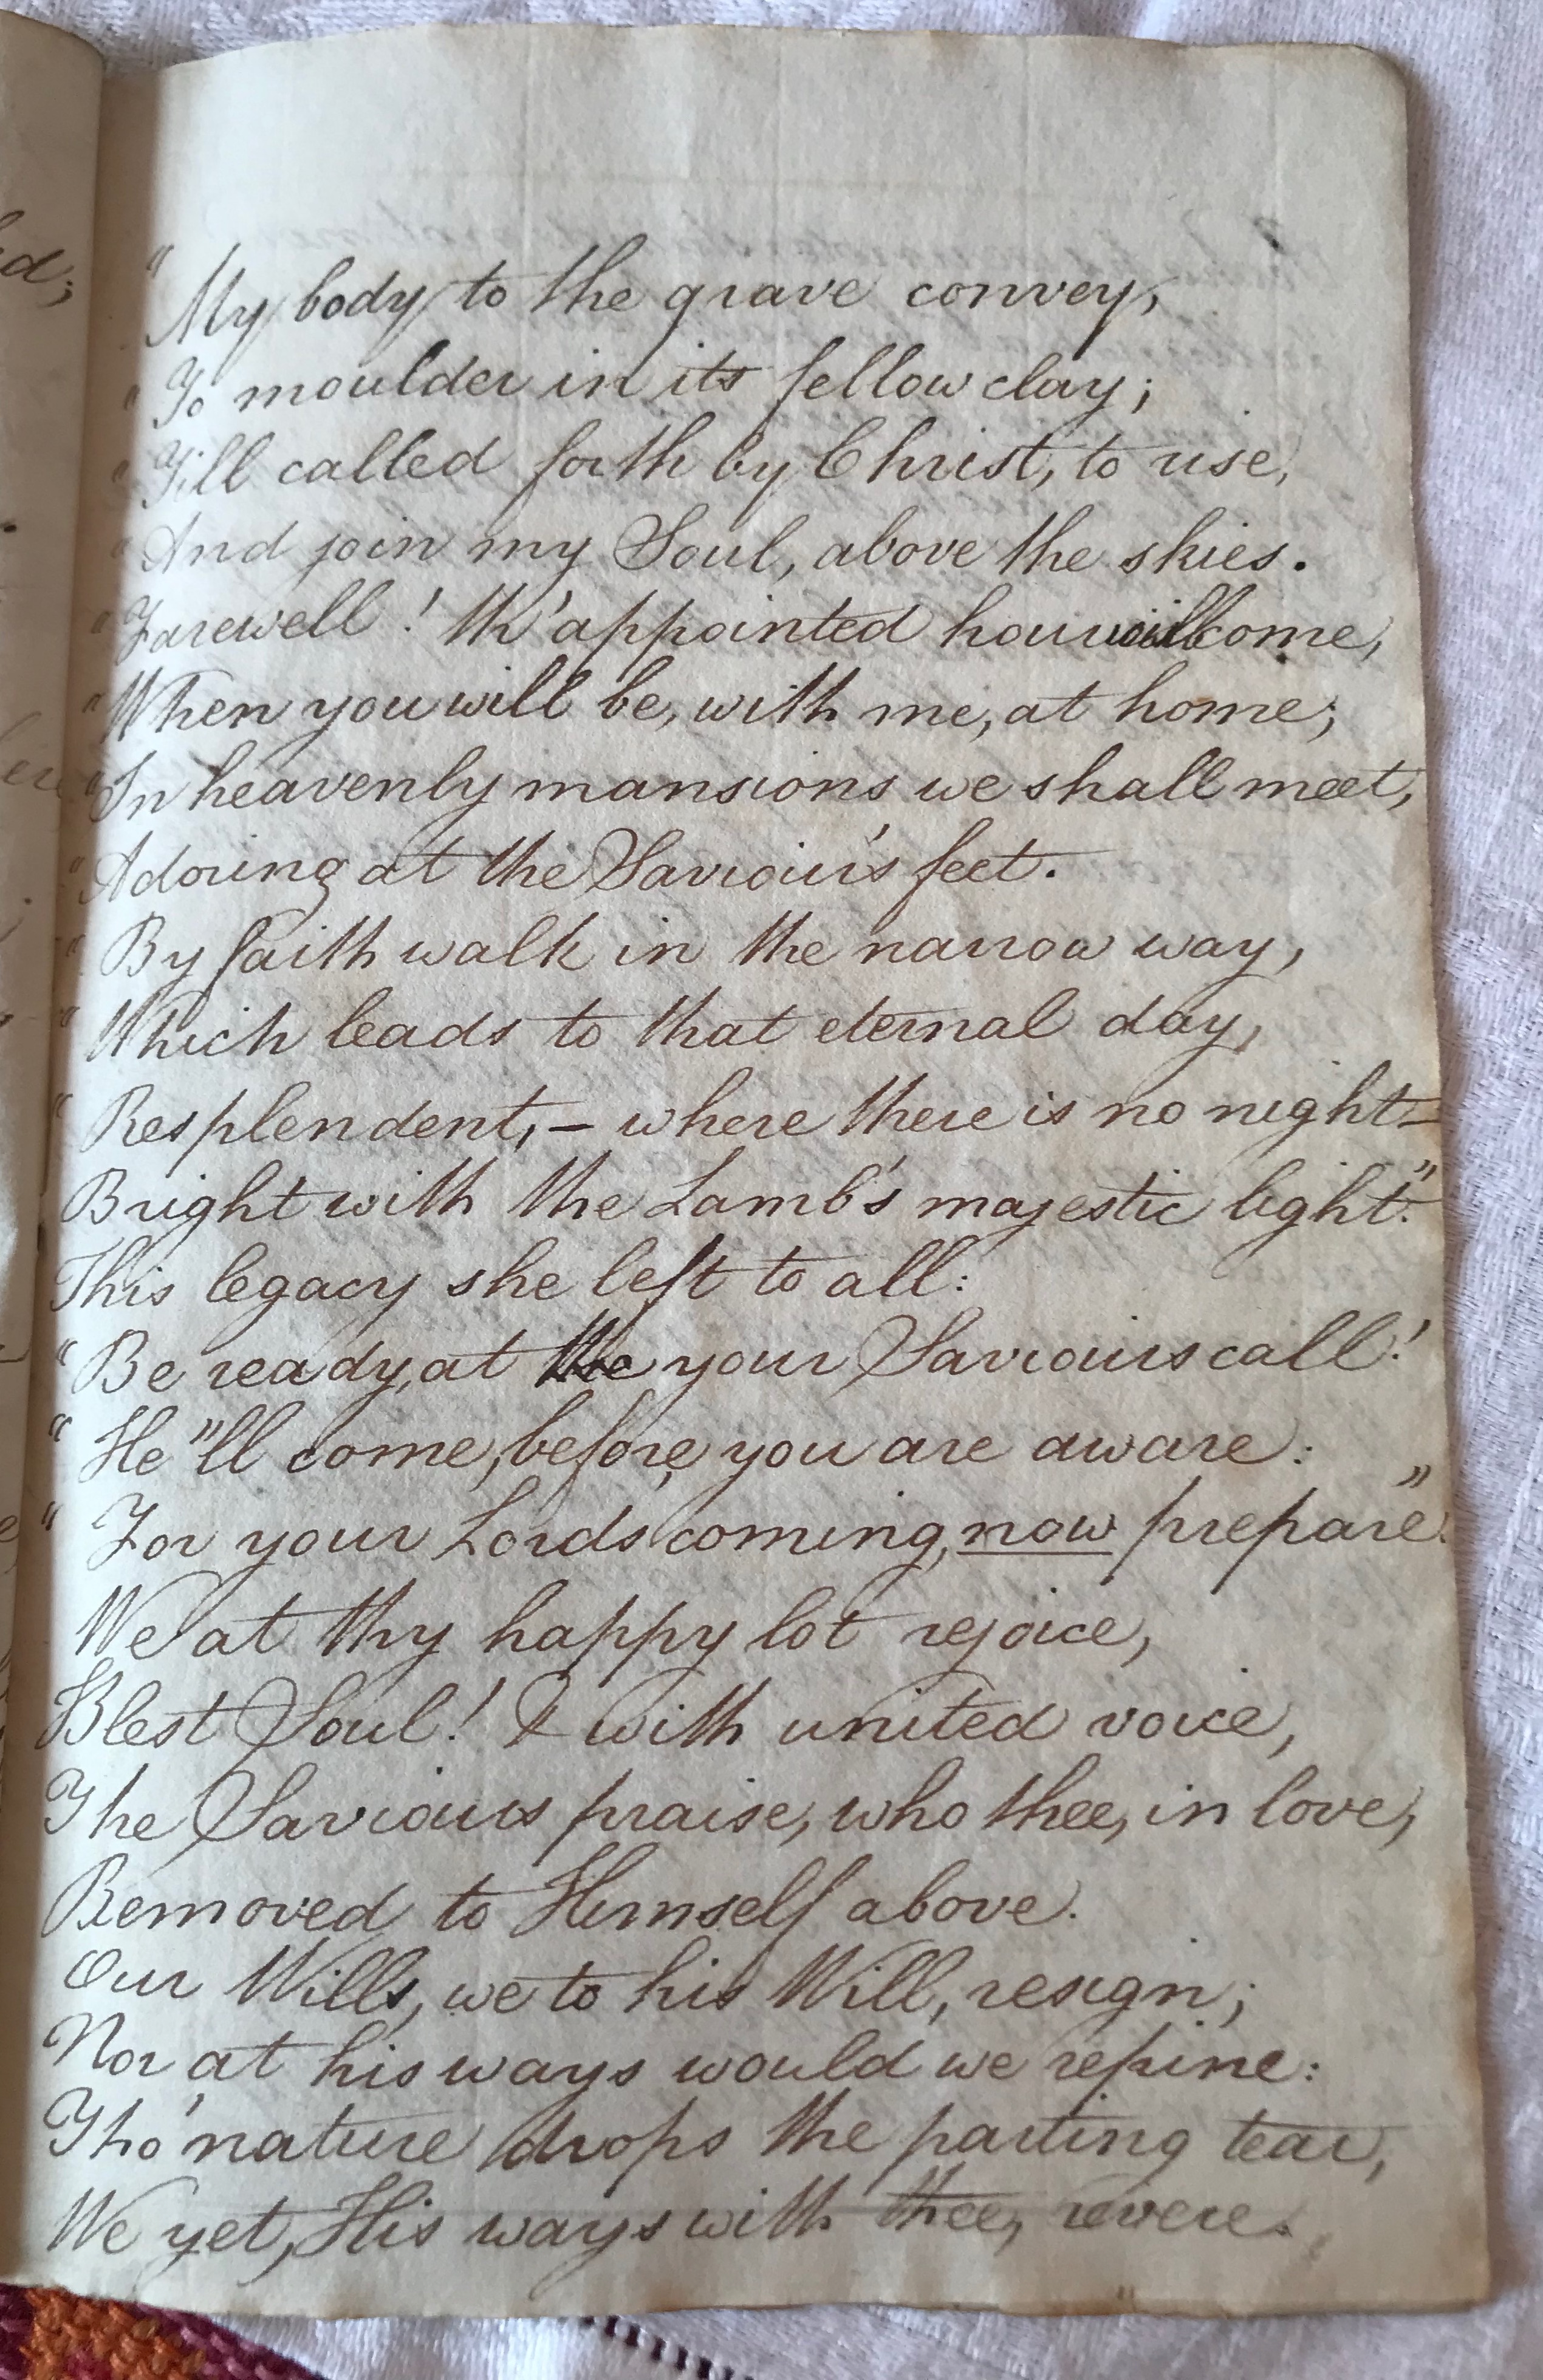 "My body to the grave convey,
"To moulder in its fellow clay;
"Till called forth by Christ, to rise,
"And join my Soul, above the skies.
"Farewell! th' appointed hour will come,
"When you will be, with me, at home;
"In heavenly mansions we shall meet,
"Adoring at the Saviour's feet.
"By faith walk in the narrow way,
"Which leads to that eternal day,
"Resplendent, – where there is no night –
Bright with the Lamb's majestic light."
This legacy she left to all:
"Be ready, at the your Saviours call!
"He"ll come, before you are aware:
"For your Lords coming, now prepare."
We at thy happy lot rejoice,
Blest Soul! & with united voice,
The Saviours praise, who thee, in love,
Removed to Himself above.
Our Wills, we to his Will, resign;
Nor at his ways would we repine:
Tho' nature drops the parting tear,
We yet, His ways with thee, revere.